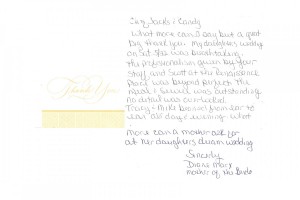 Thank You
What more can I say but a great
big thank you. My daughters wedding
on Sat. was breathtaking.
The professionalism given by your
staff and Scott at the Renaissance
Place was beyond perfect. The
meal & service was outstanding
no detail was overlooked.
Tracy & Mike beamed from ear to
ear all day & evening. What
more can a mother ask for
at her daughters dream wedding
Sincerely
Diane Marx
mother of the Bride